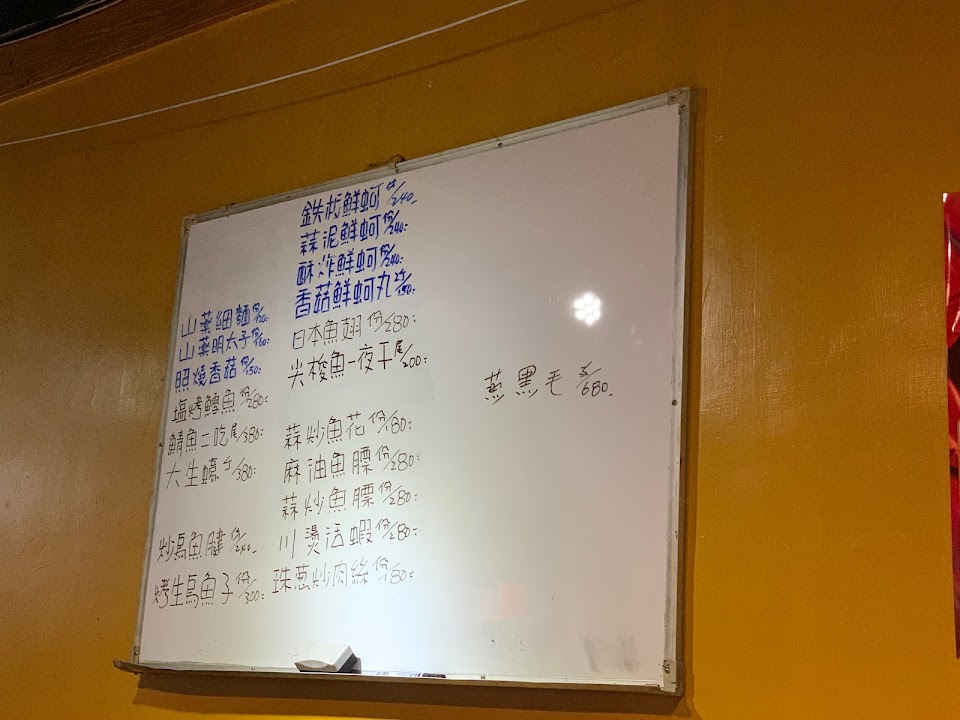 鉄板鮮蚵 /240
蒜泥鮮蚵 份/240
酥炸鮮蚵 份/240
香菇鮮蚵丸 /150
日本魚翅 份/280
尖梭魚一夜干 尾/200
蒜炒魚花 份/180
麻油魚膘 份/280
蒜炒魚膘 份/280
川燙活蝦 份/280
珠葱炒肉絲 份/180
山葯細麵 份/120
山葯明太子 份/160
照燒香菇 份/150
塩烤鱈魚 份/280
鯖魚二吃 尾/380
大生蠔 /380
炒烏魚腱 份/240
烤生烏魚子 份/300
蒸黑毛 /680